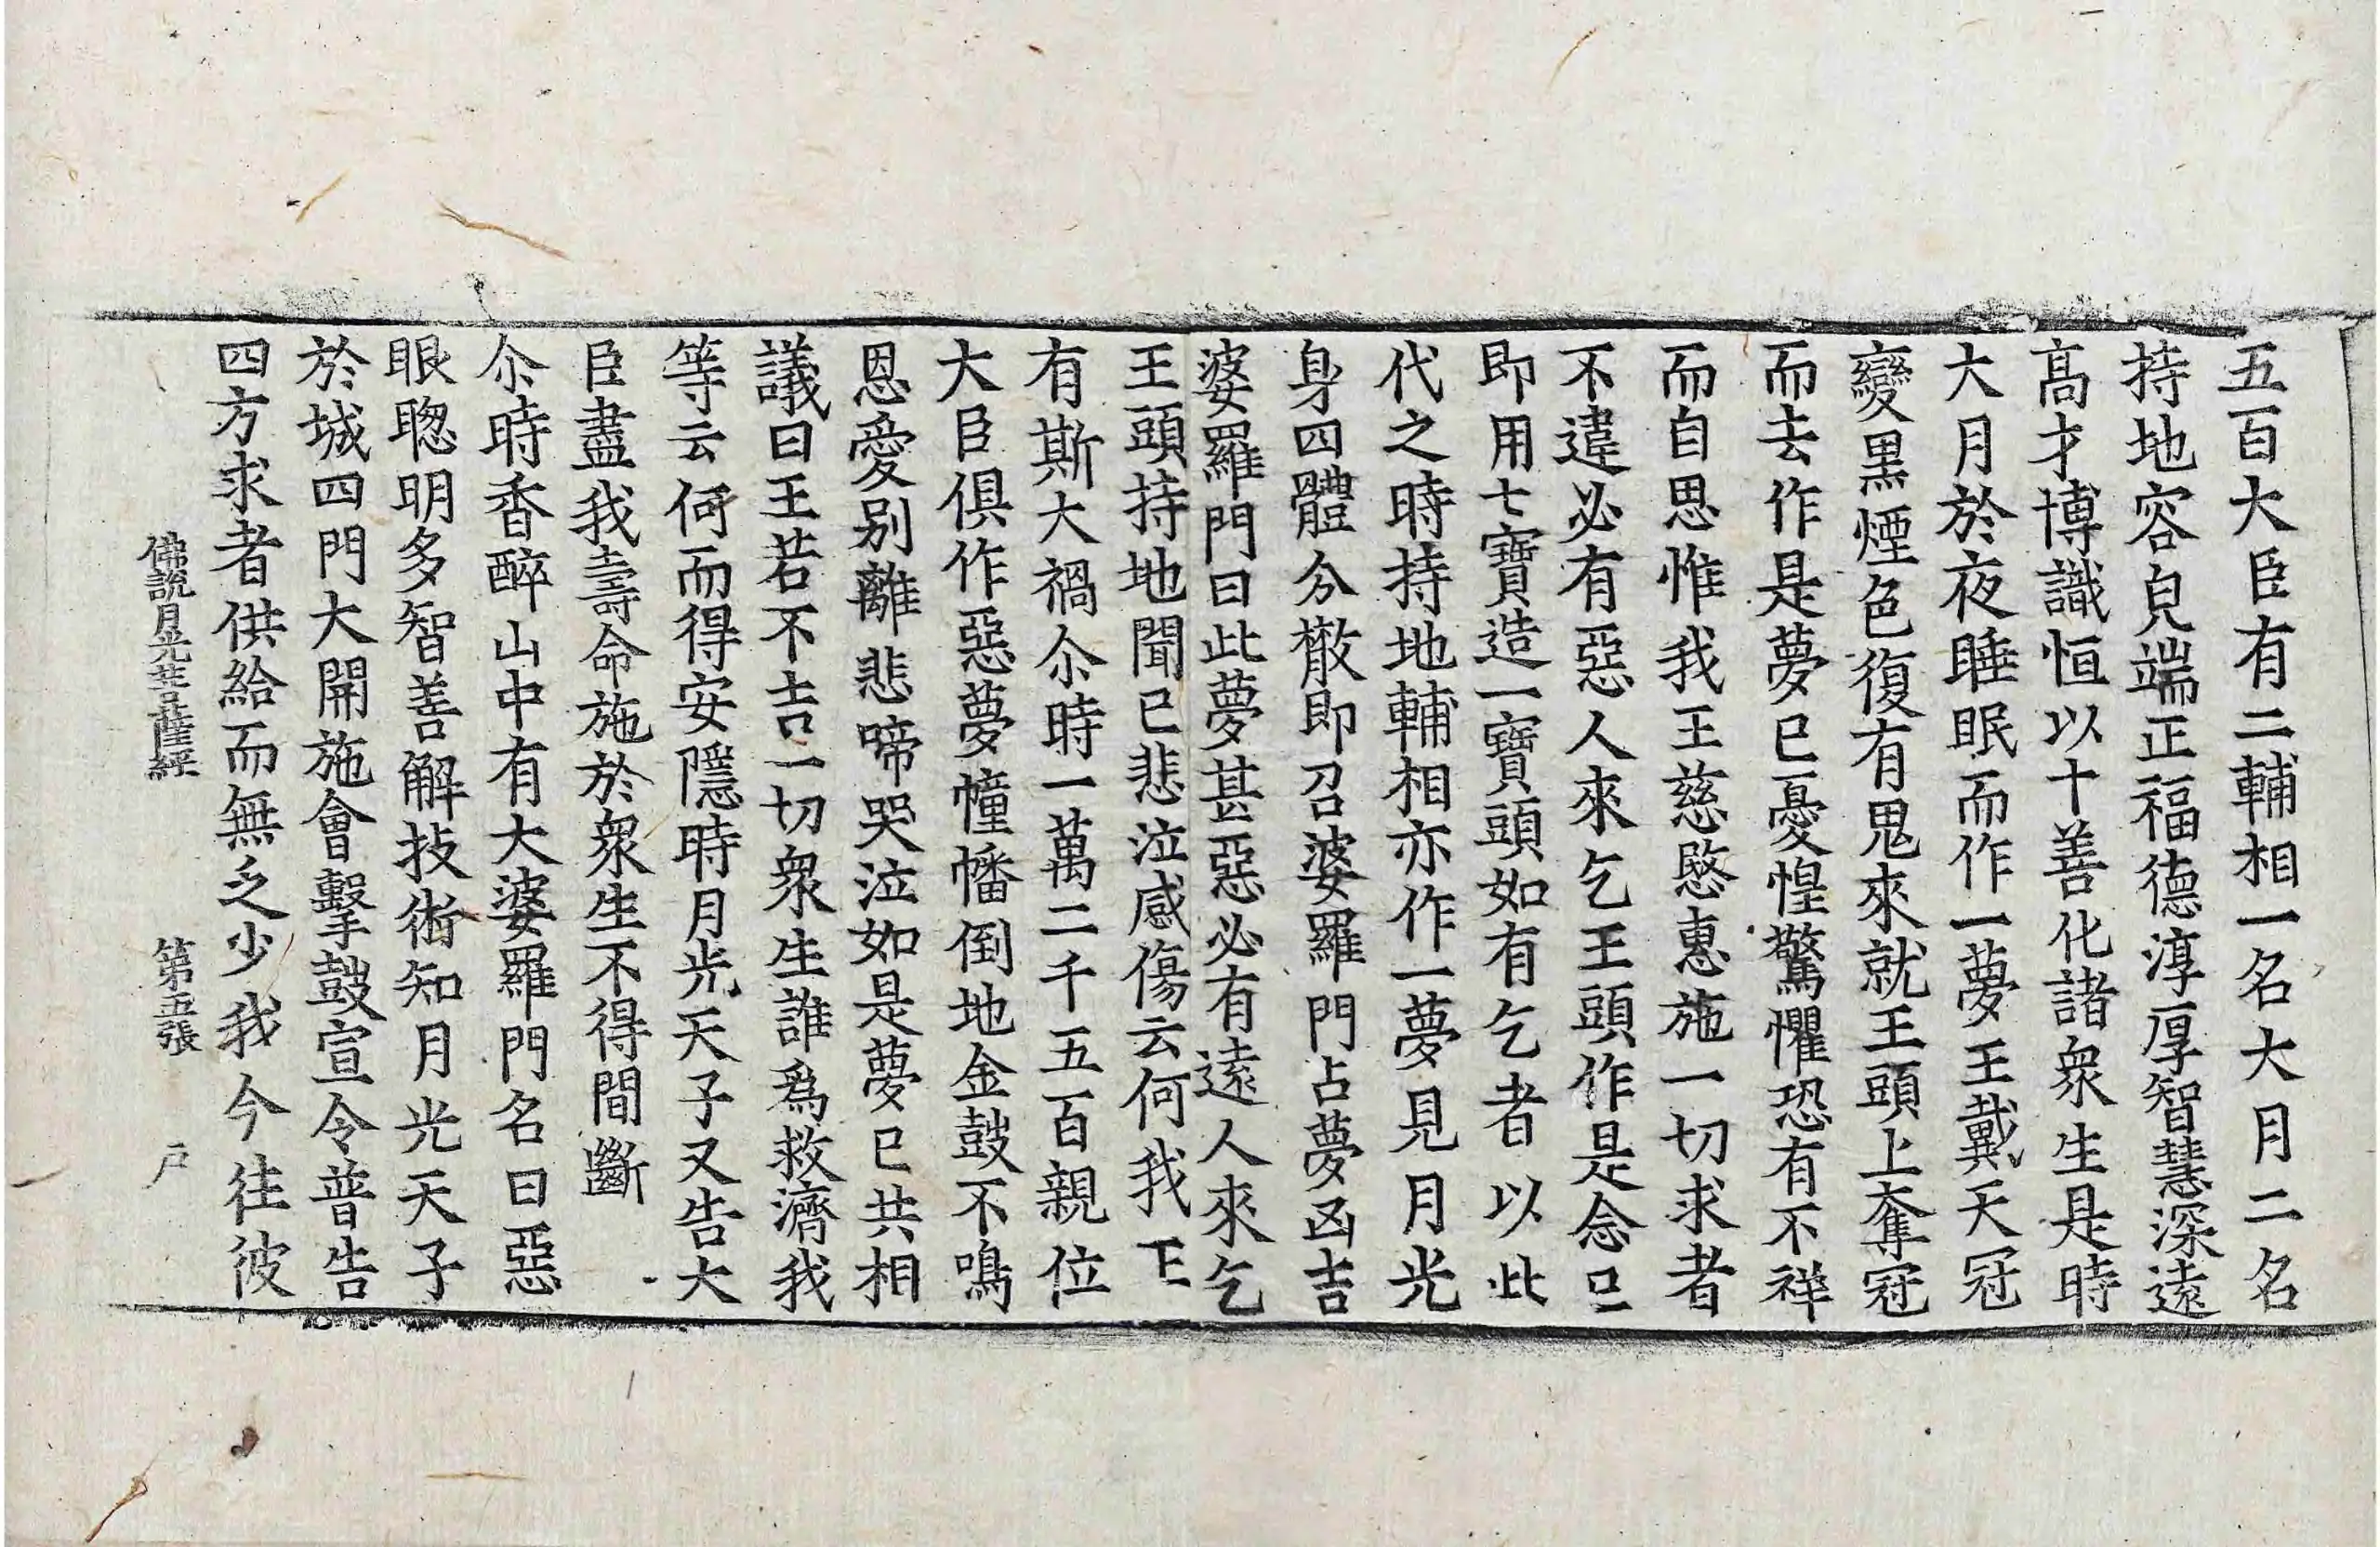 五百大臣有二輔相一名大月二名
持地容皃端正福德淳厚智慧深遠
高才博識恒以十善化諸衆生是時
大月於夜睡眠而作一夢王戴天冠
變黑煙色復有鬼來就王頭上奪冠
而去作是夢已憂惶驚懼恐有不祥
而自思惟我王慈愍惠施一切求者
不違必有惡人來乞王頭作是念已
即用七寶造一寶頭如有乞者以此
代之時持地輔相亦作一夢見月光
身四體分散即召婆羅門占夢凶吉
婆羅門曰此夢甚惡必有遠人來乞
王頭持地聞已悲泣感傷云何我王
有斯大禍尒時一萬二千五百親位
大臣俱作惡夢幢幡倒地金鼓不鳴
恩愛別離悲啼哭泣如是夢已共相
議曰王若不吉一切衆生誰爲救濟我
等云何而得安隱時月光天子又告大
臣盡我壽命施於衆生不得間斷
尒時香醉山中有大婆羅門名曰惡
眼聰明多智善解技術知月光天子
於城四門大開施會擊鼓宣令普告
四方求者供給而無乏少我今往彼
佛說月光菩薩經 第五張 戶